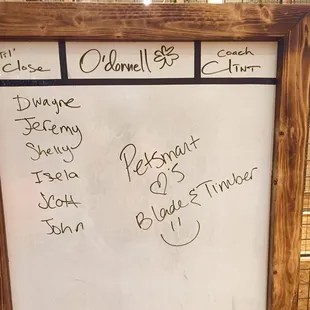 til'
Close
O'donnell
Coach
Clint
Dwayne
Jeremy
Shelly
Isela
Scott
John
Petsmart
♡'s
Blade & Timber